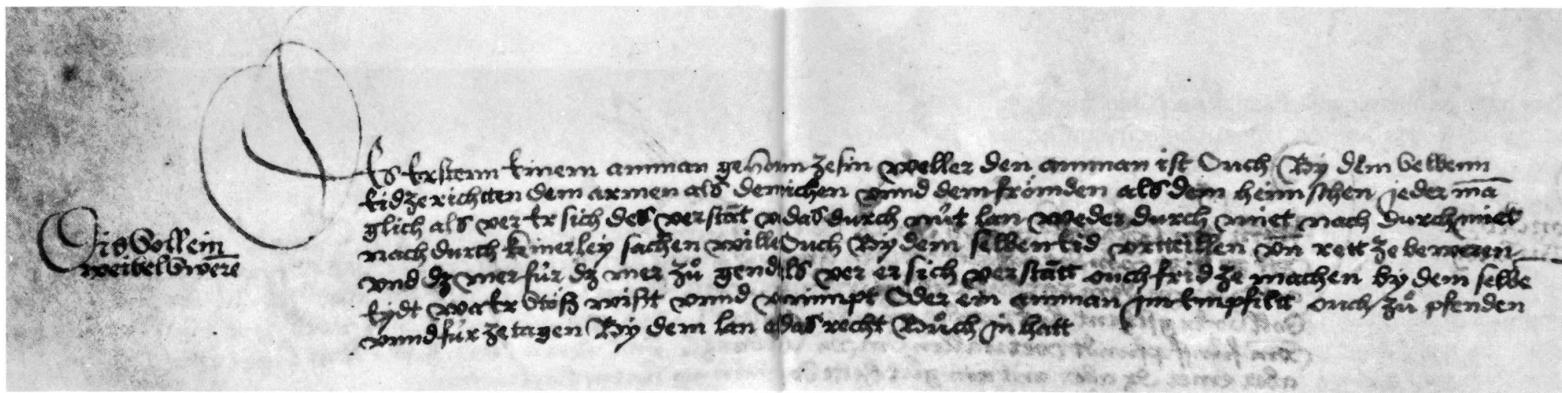 Dis soll ein
weibel schwere
Des Ersten Einem amman gehorsam ze sin weller den amman ist Ouch By dem selbenn
Eid ze richtten dem armen als dem richen vnnd dem frömden als dem heimschen jeder mā
glich als ver Er sich des verstāt v das durch nüt lan weder durch miet nach durch miet
nach durch keinerley sachen wille Ouch By dem selben Eid vrtteillen vn rett ze beweren
vnd dz mer für dz mer zů gend als ver er sich verstātt ouch frid ze machen by dem selbē
Eydt wa Er Stöß wist vnnd vnimpt Oder ein amman jm Empfiltt ouch zů pfenden
vnnd für ze tagen By dem lan das recht Bůch jn hatt